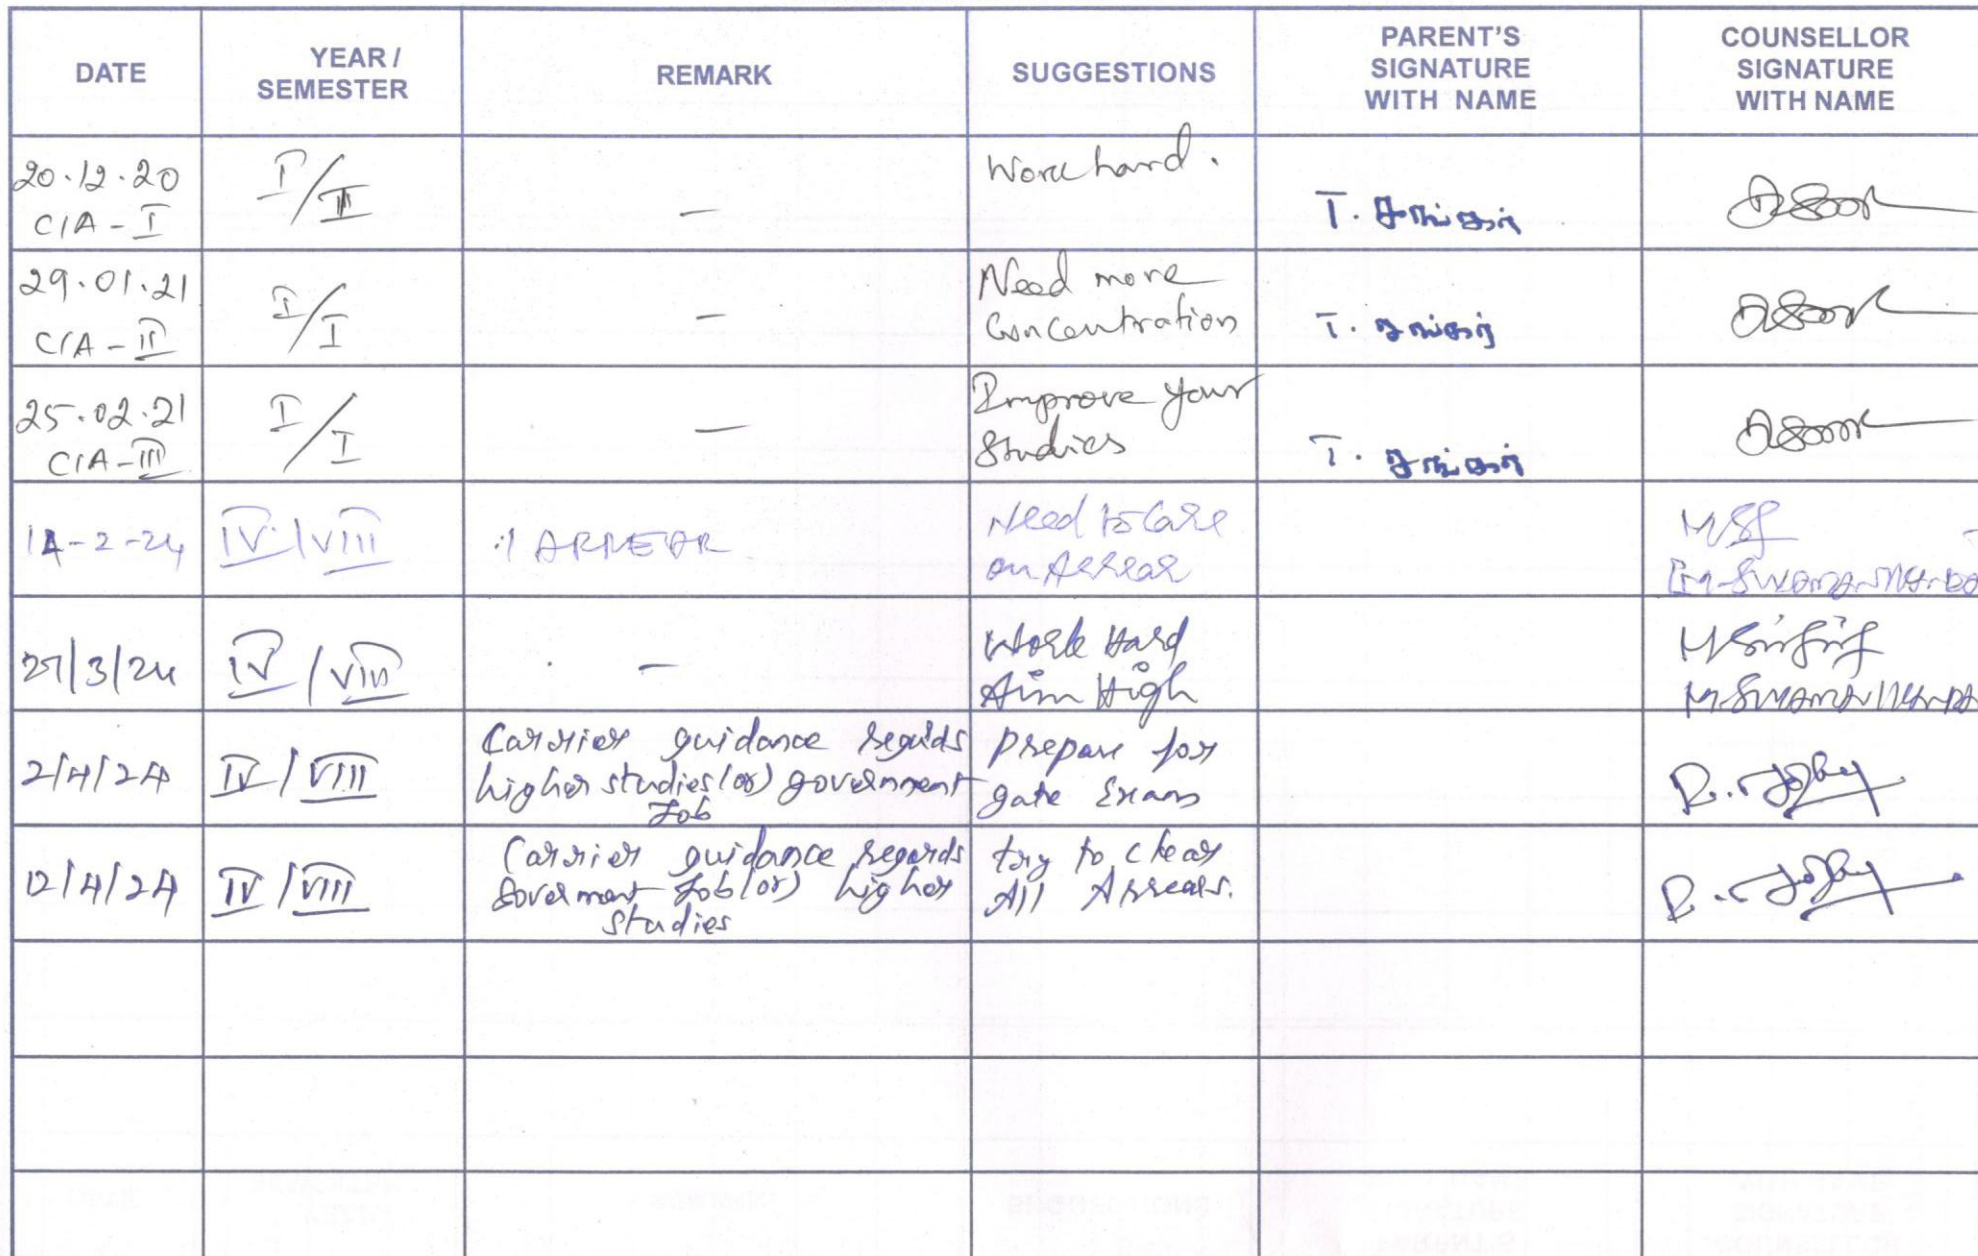 DATE
YEAR /
SEMESTER
REMARK
SUGGESTIONS
PARENT'S
SIGNATURE
WITH NAME
COUNSELLOR
SIGNATURE
WITH NAME
20.12.20
CIA - I
I/II
—
Work hard.
T. சங்கர்
29.01.21
CIA - II
I/I
—
Need more
Concentration
T. சங்கர்
25.02.21
CIA - III
I/I
—
Improve your
Studies
T. சங்கர்
14-2-24
IV/VIII
1 ARREAR
Need to Care
on Arrear
27/3/24
IV/VIII
—
Work Hard
Aim High
2/4/24
IV/VIII
Carrier guidance regards
higher studies (or) government
Job
prepare for
gate Exams
12/4/24
IV/VIII
Carrier guidance regards
Goverment Job (or) higher
studies
try to clear
All Arrears.